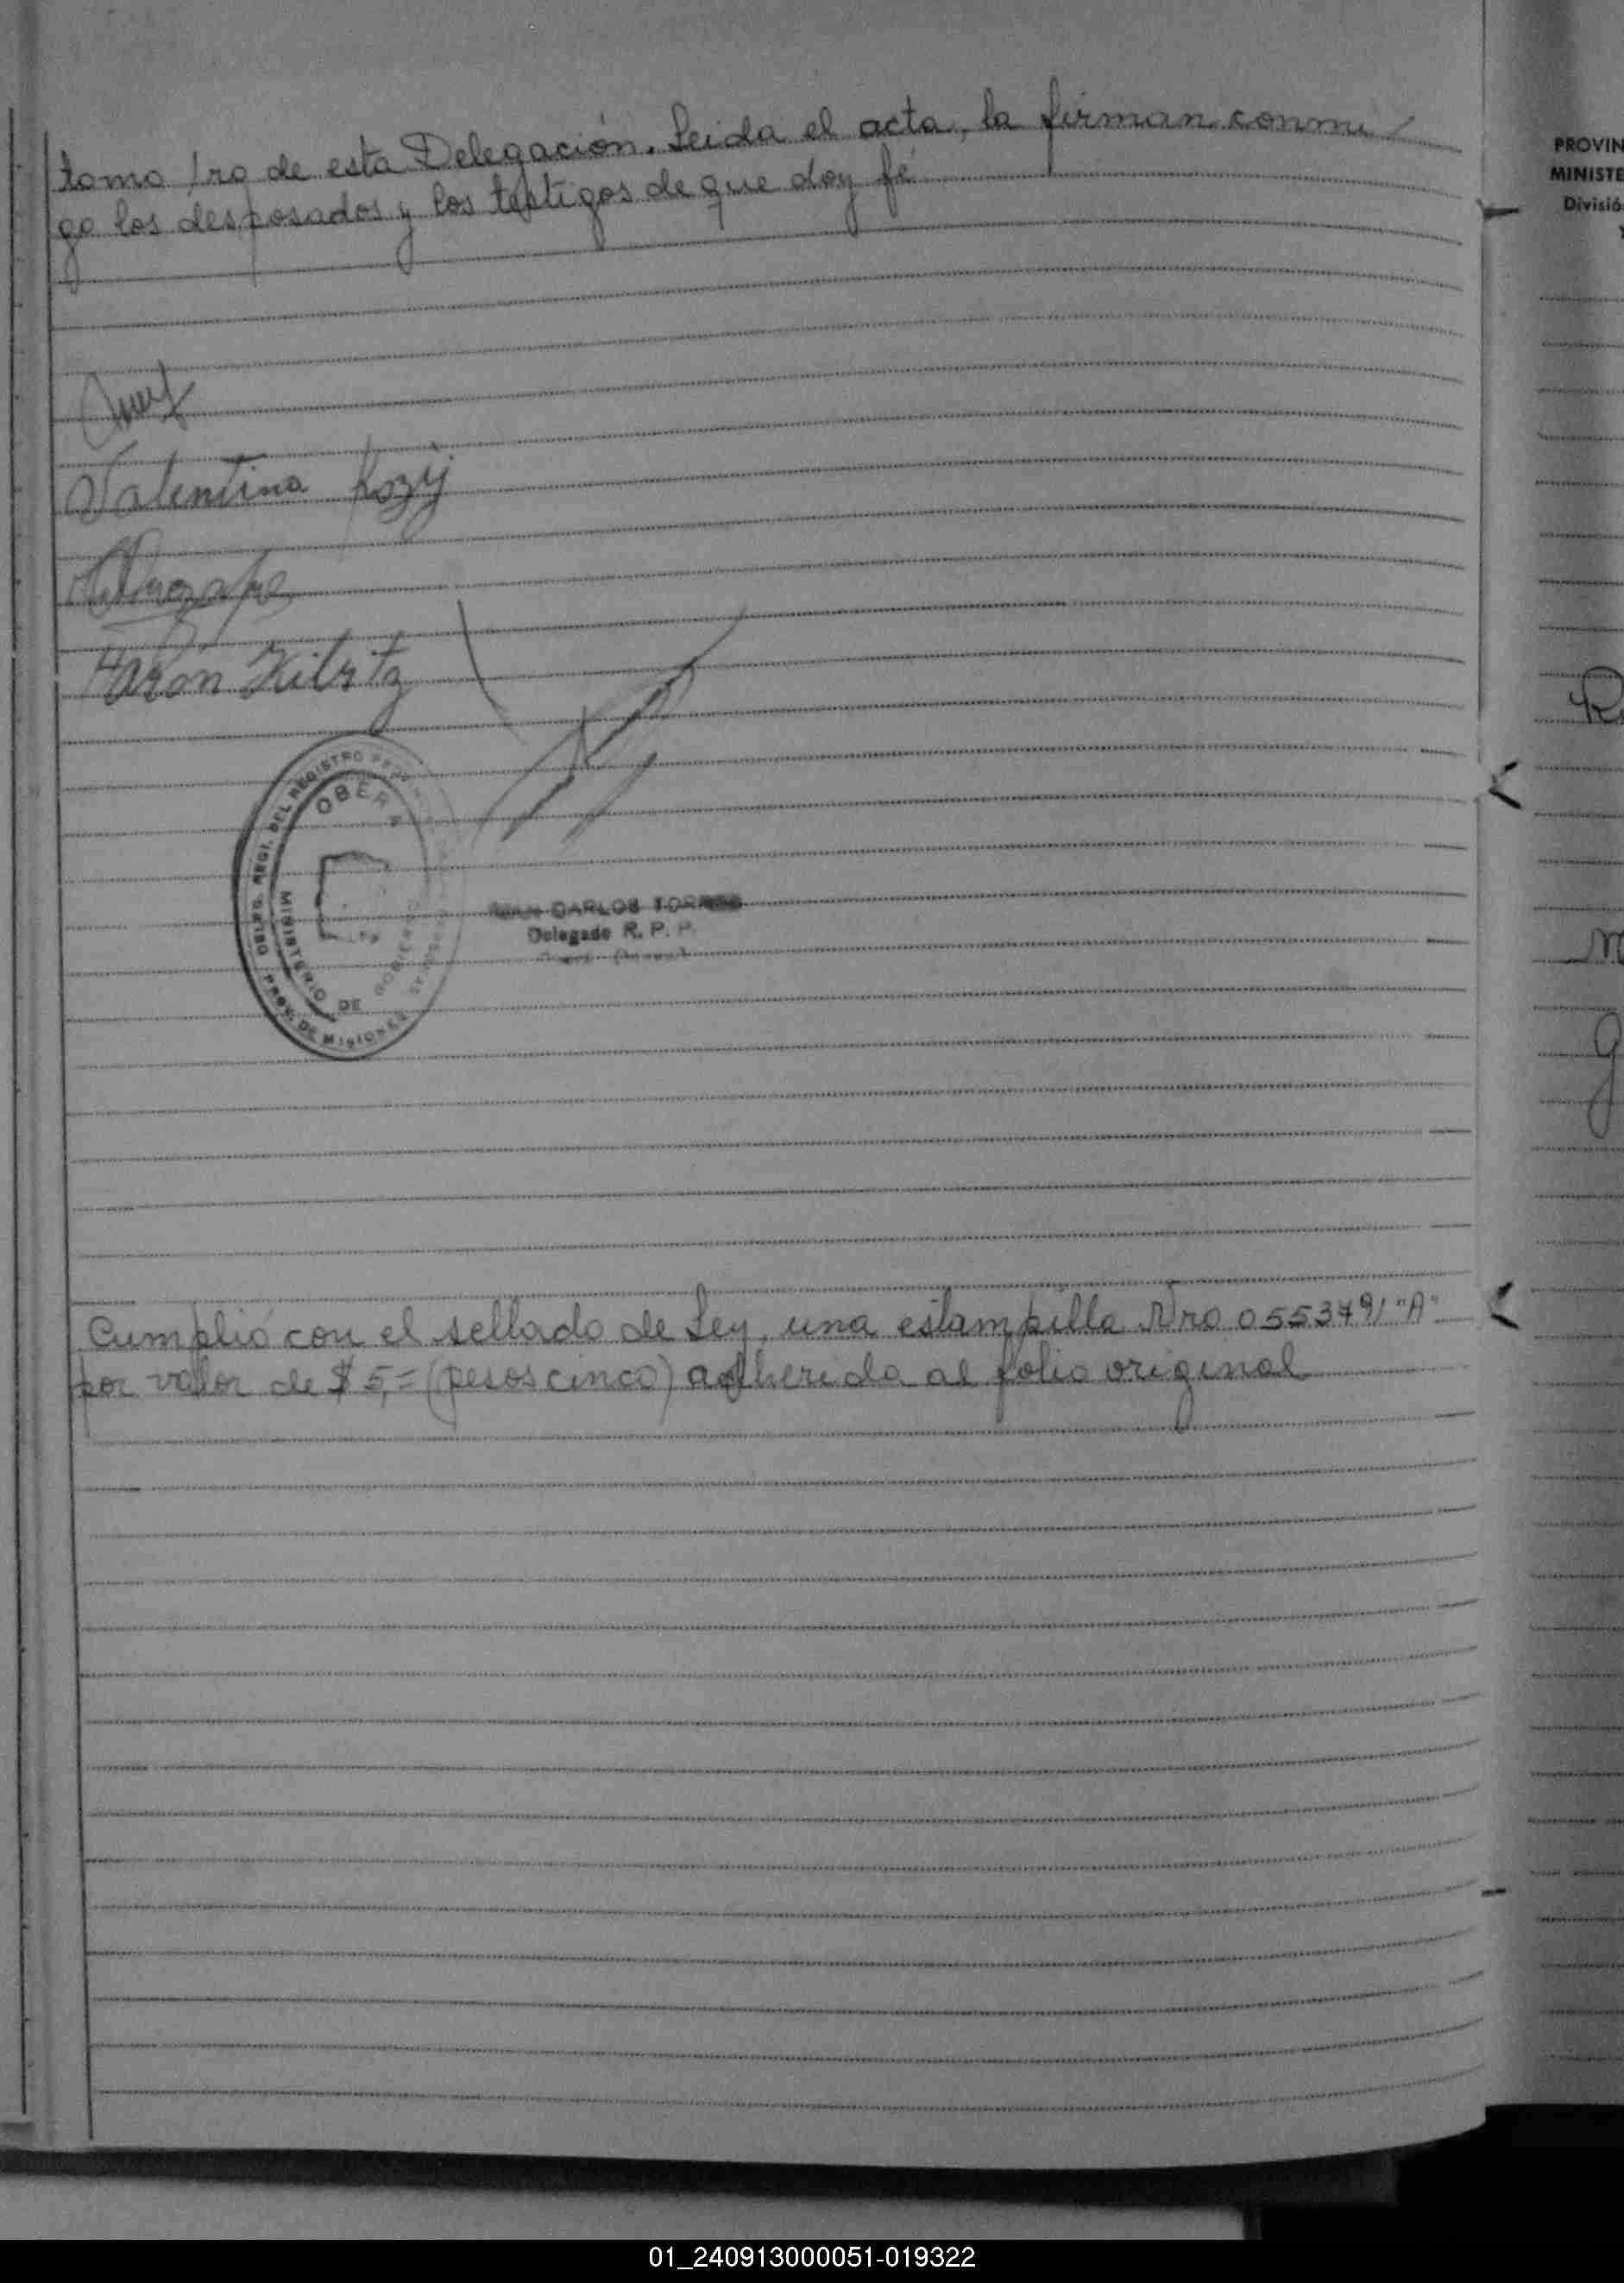 tomo 1ro de esta Delegación. Leida el acta, la firman conmi
go los desposados y los testigos de que doy fé
Valentina
Aaron
OBLES. REGI. DEL REGISTRO PROV. DE MISIONES
OBERA
MINISTERIO DE GOBIERNO
JUAN CARLOS TORRES
Delegado R. P. P.
Cumplió con el sellado de Ley, una estampilla Nro 0553791 "A"
por valor de $ 5,= (pesos cinco) adherida al folio original
PROVIN
MINISTE
Divisió
01_240913000051-019322